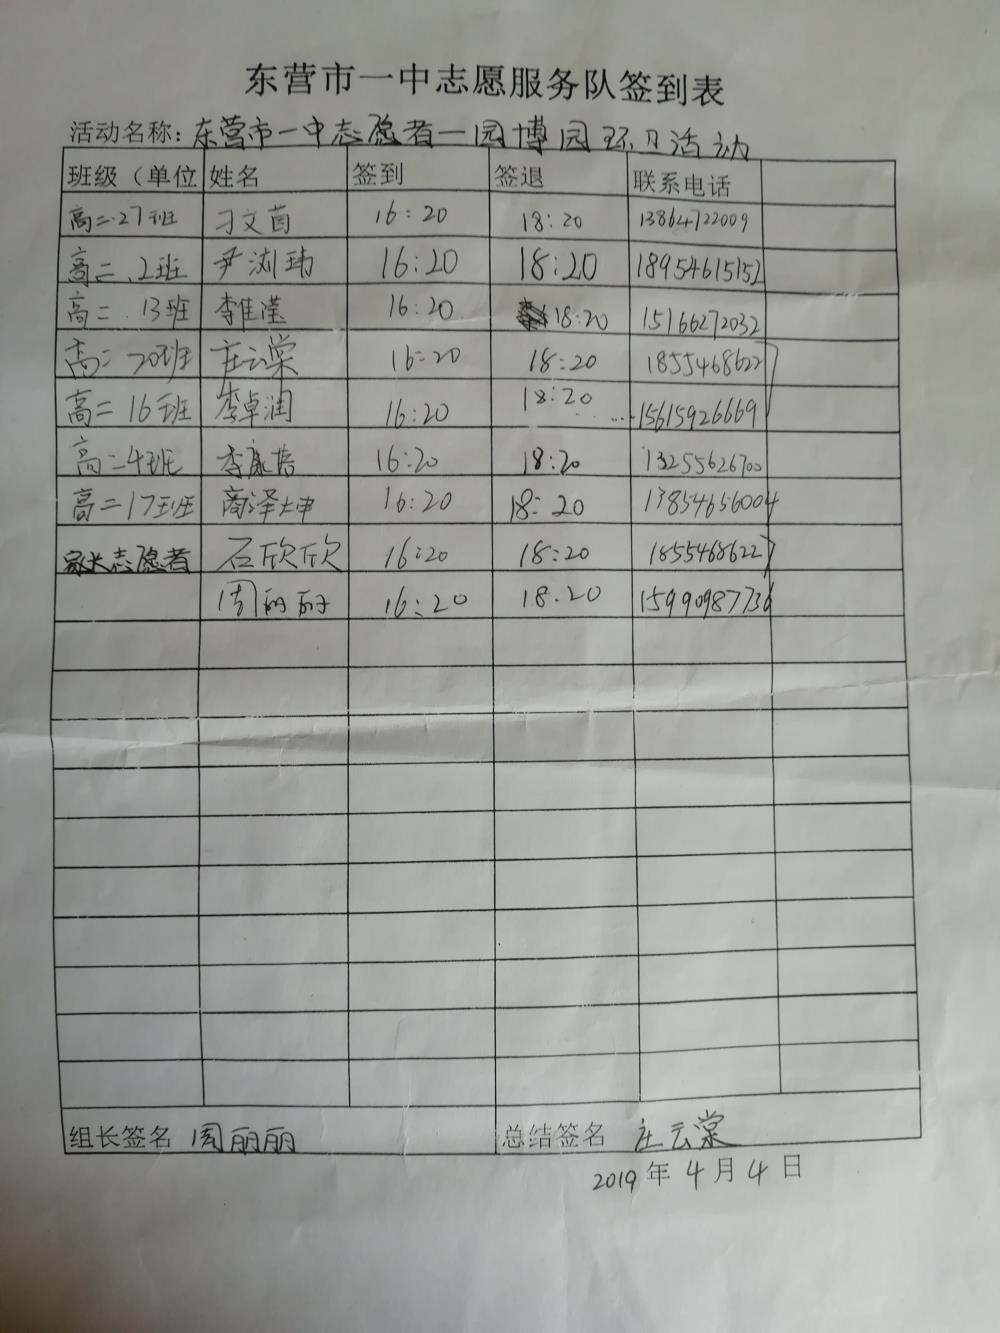 东营市一中志愿服务队签到表
活动名称：东营市一中志愿者—园博园环卫活动
班级（单位 姓名 签到 签退 联系电话
高二.27班 刁文茵 16:20 18:20 13864722009
高二.2班 尹浏玮 16:20 18:20 18954615152
高二.13班 李佳滢 16:20 18:20 15166272032
高二20班 庄云棠 16:20 18:20 18554686227
高二16班 李卓润 16:20 18:20 15615926669
高二4班 李康培 16:20 18:20 13255626700
高二17班 商泽坤 16:20 18:20 13854656004
家长志愿者 石欣欣 16:20 18:20 18554686227
周丽丽 16:20 18.20 15990987736
组长签名 周丽丽 总结签名 庄云棠
2019年4月4日